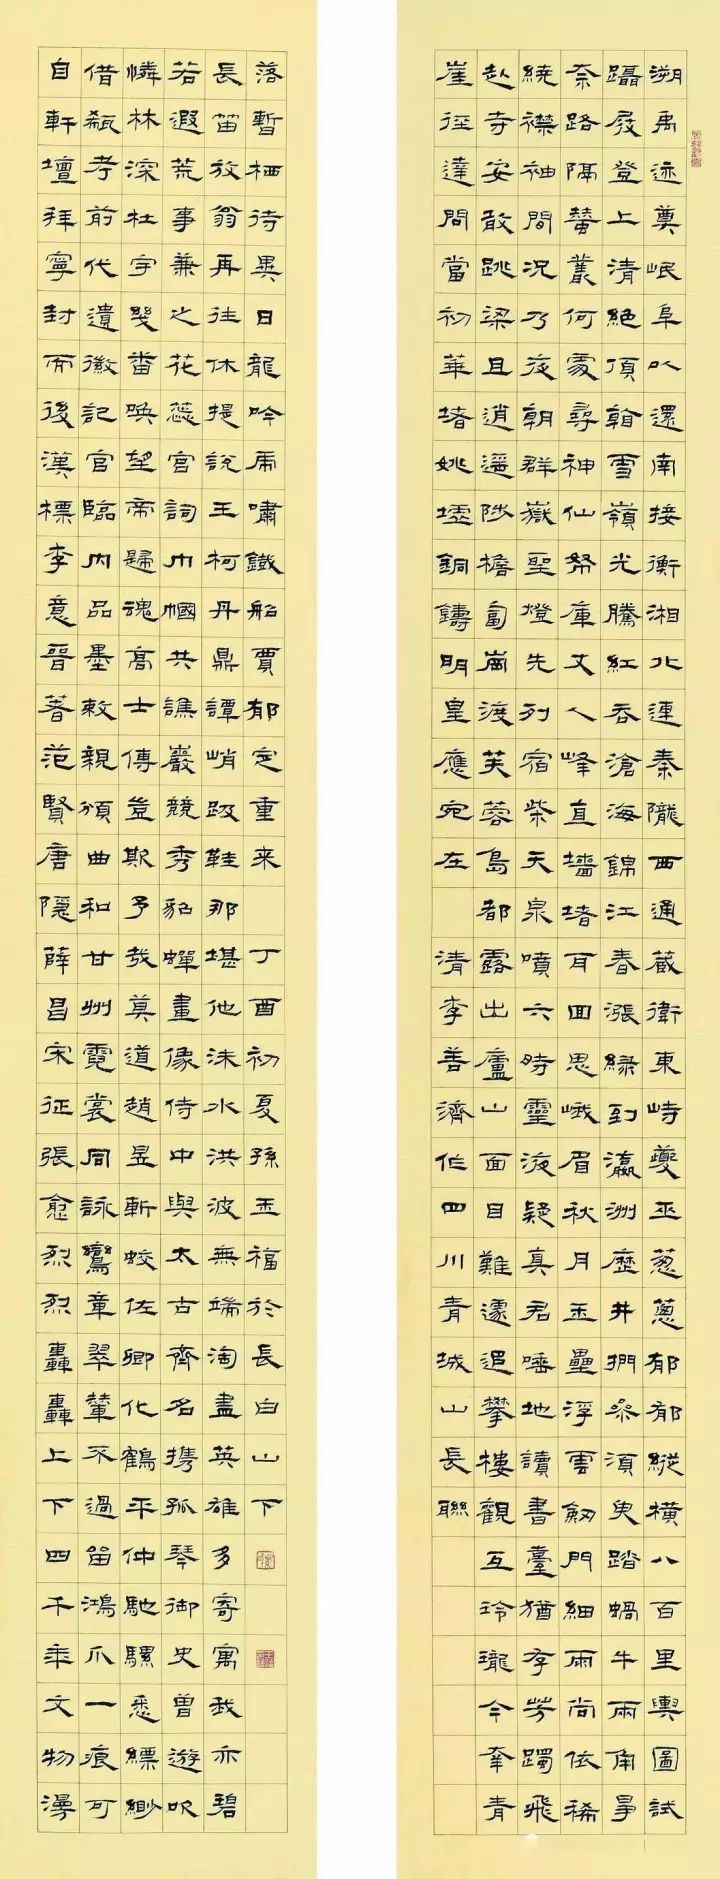 溯禹迹奠岷阜以還南接衡湘北連秦隴西通藏衛東峙夔巫葱蔥郁郁縱橫八百里輿圖試
躡屐登上清絕頂翰雪嶺光騰紅吞滄海錦江春漲綠到瀛洲歷井捫參須臾踏蝸牛兩角爭
奈路隔蠶叢何處尋神仙帑庫丈人峰直墻堵耳回思峨眉秋月玉壘浮雲劒門細雨尚依稀
繞襟袖間況乃夜朝群嶽聖燈先列宿柴天泉噴六時靈液疑真君唾地讀書臺猶存芳躅飛
赴寺安敢跳梁且逍遙陟檐匐崗渡芙蓉島都露出廬山面目難遽追攀樓觀互玲瓏今幸青
崖徑達問當初華堵姚墟銅鑄明皇應宛在
清李善濟作四川青城山長聯
自軒壇拜寧封而後漢標李意晉著范賢唐隱薛昌宋征張愈烈烈轟轟上下四千乘文物漫
借瓻考前代遺徽記官臨內品墨敕親頒曲和甘州霓裳同詠鸞章翠輦不過留鴻爪一痕可
憐林深杜宇幾番喚望帝歸魂高士傳豈欺予哉莫道趙昱斬蛟佐卿化鶴平仲馳騾悉縹緲
若遐荒事兼之花蕊宮詞巾幗共譙巖競秀貂蟬畫像侍中與太古齊名攜孤琴御史曾遊吹
長笛放翁再往休提說王柯丹鼎譚峭趿鞋那堪他沫水洪波無端淘盡英雄多寄寓我亦碧
落暫栖待異日龍吟虎嘯鐵船賈郁定重来
丁酉初夏孫玉福於長白山下